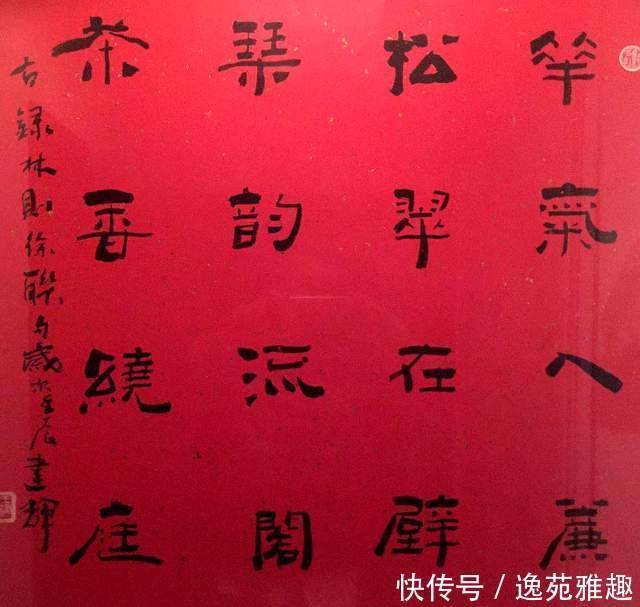 氣入簾
松翠在壁
琴韵流閣
茶香繞庭
錄林則徐聯句歲次壬辰建輝
快传号 / 逸苑雅趣